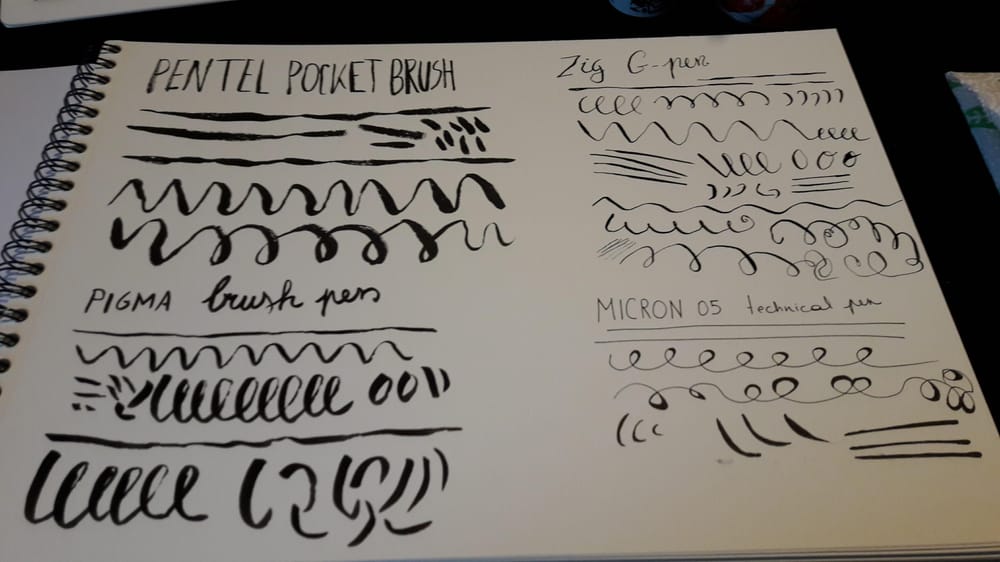 PENTEL POCKET BRUSH
PIGMA brush pen
Zig G-pen
MICRON 05 technical pen